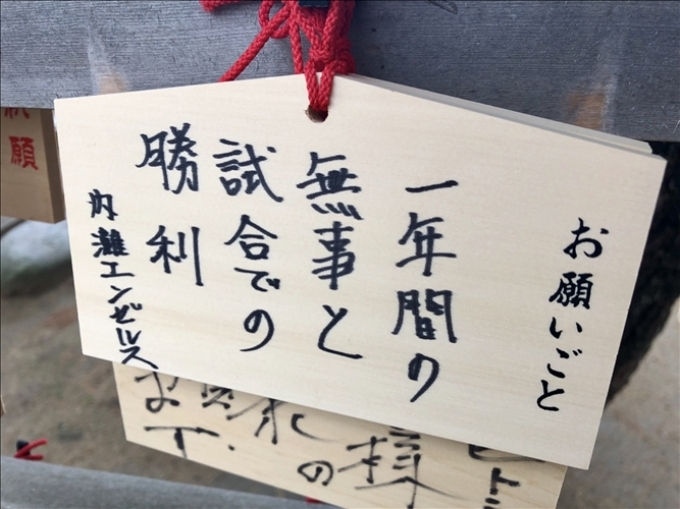 お願いごと
一年間の
無事と
試合での
勝利
内灘エンゼルス
願
様
の